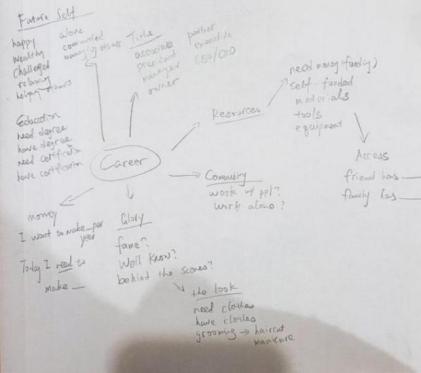 Future Self
happy
wealthy
challenged
relaxing
helping others
alone
committed
managing others
Title
associate
president
manager
owner
partner
executive
CEO/COO
Education
need degree
have degree
need certification
have certification
Career
Resources
need money funding
self-funded
materials
tools
equipment
Access
friend has
family has
Community
work w/ ppl?
work alone?
money
I want to make per
year
Today I need to
make
Glory
fame?
Well know?
behind the scenes?
the look
need clothes
have clothes
grooming → haircut
manicure